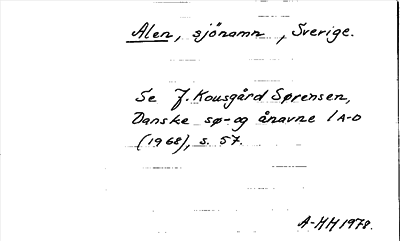 Alen, sjönamn, Sverige.
Se J. Kousgård Sørensen,
Danske sø- og ånavne 1 A-D
(1968), s. 57.
A-HH 1978.